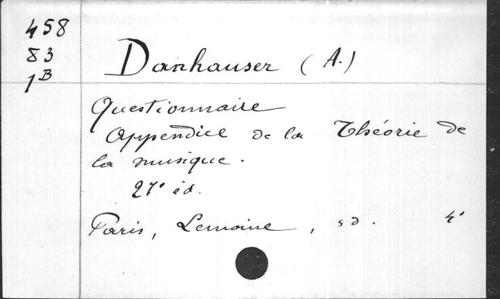 458
83
1B
Danhauser (A.)
Questionnaire
Appendice de la Théorie de
la musique.
27e éd.
Paris, Lemoine, s d. 4°